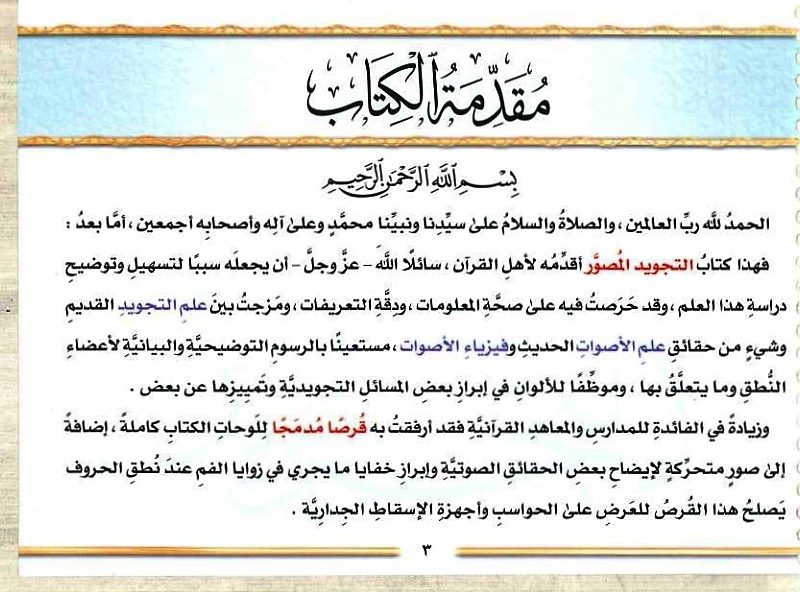 مُقَدِّمَةُ الكِتَابِ
بِسْمِ اللَّهِ الرَّحْمَٰنِ الرَّحِيمِ
الحمدُ للَّه ربِّ العالمين ، والصلاةُ والسلامُ علىٰ سيِّدِنا ونبيِّنا محمَّدٍ وعلىٰ آلِه وأصحابِه أجمعين ، أمَّا بعدُ :
فهذا كتابُ التجويد المُصوَّر أقدِّمُه لأهلِ القرآن ، سائلًا اللَّهَ – عزَّ وجلَّ – أن يجعلَه سببًا لتسهيلِ وتوضيحِ
دراسةِ هذا العلم ، وقد حَرَصتُ فيه علىٰ صحَّةِ المعلومات ، ودِقَّةِ التعريفات ، ومَزجتُ بينَ علمِ التجويدِ القديمِ
وشيءٍ من حقائقِ علمِ الأصواتِ الحديثِ وفيزياءِ الأصوات ، مستعينًا بالرسومِ التوضيحيَّةِ والبيانيَّةِ لأعضاءِ
النُّطقِ وما يتعلَّقُ بها ، وموظِّفًا للألوانِ في إبرازِ بعضِ المسائلِ التجويديَّةِ وتَمييزِها عن بعض .
وزيادةً في الفائدةِ للمدارسِ والمعاهدِ القرآنيَّةِ فقد أرفقتُ به قُرصًا مُدمَجًا لِلَوحاتِ الكتابِ كاملةً ، إضافةً
إلىٰ صورٍ متحرِّكةٍ لإيضاحِ بعضِ الحقائقِ الصوتيَّةِ وإبرازِ خفايا ما يجري في زوايا الفمِ عندَ نُطقِ الحروف
يَصلحُ هذا القُرصُ للعَرضِ علىٰ الحواسبِ وأجهزةِ الإسقاطِ الجِداريَّة .
٣